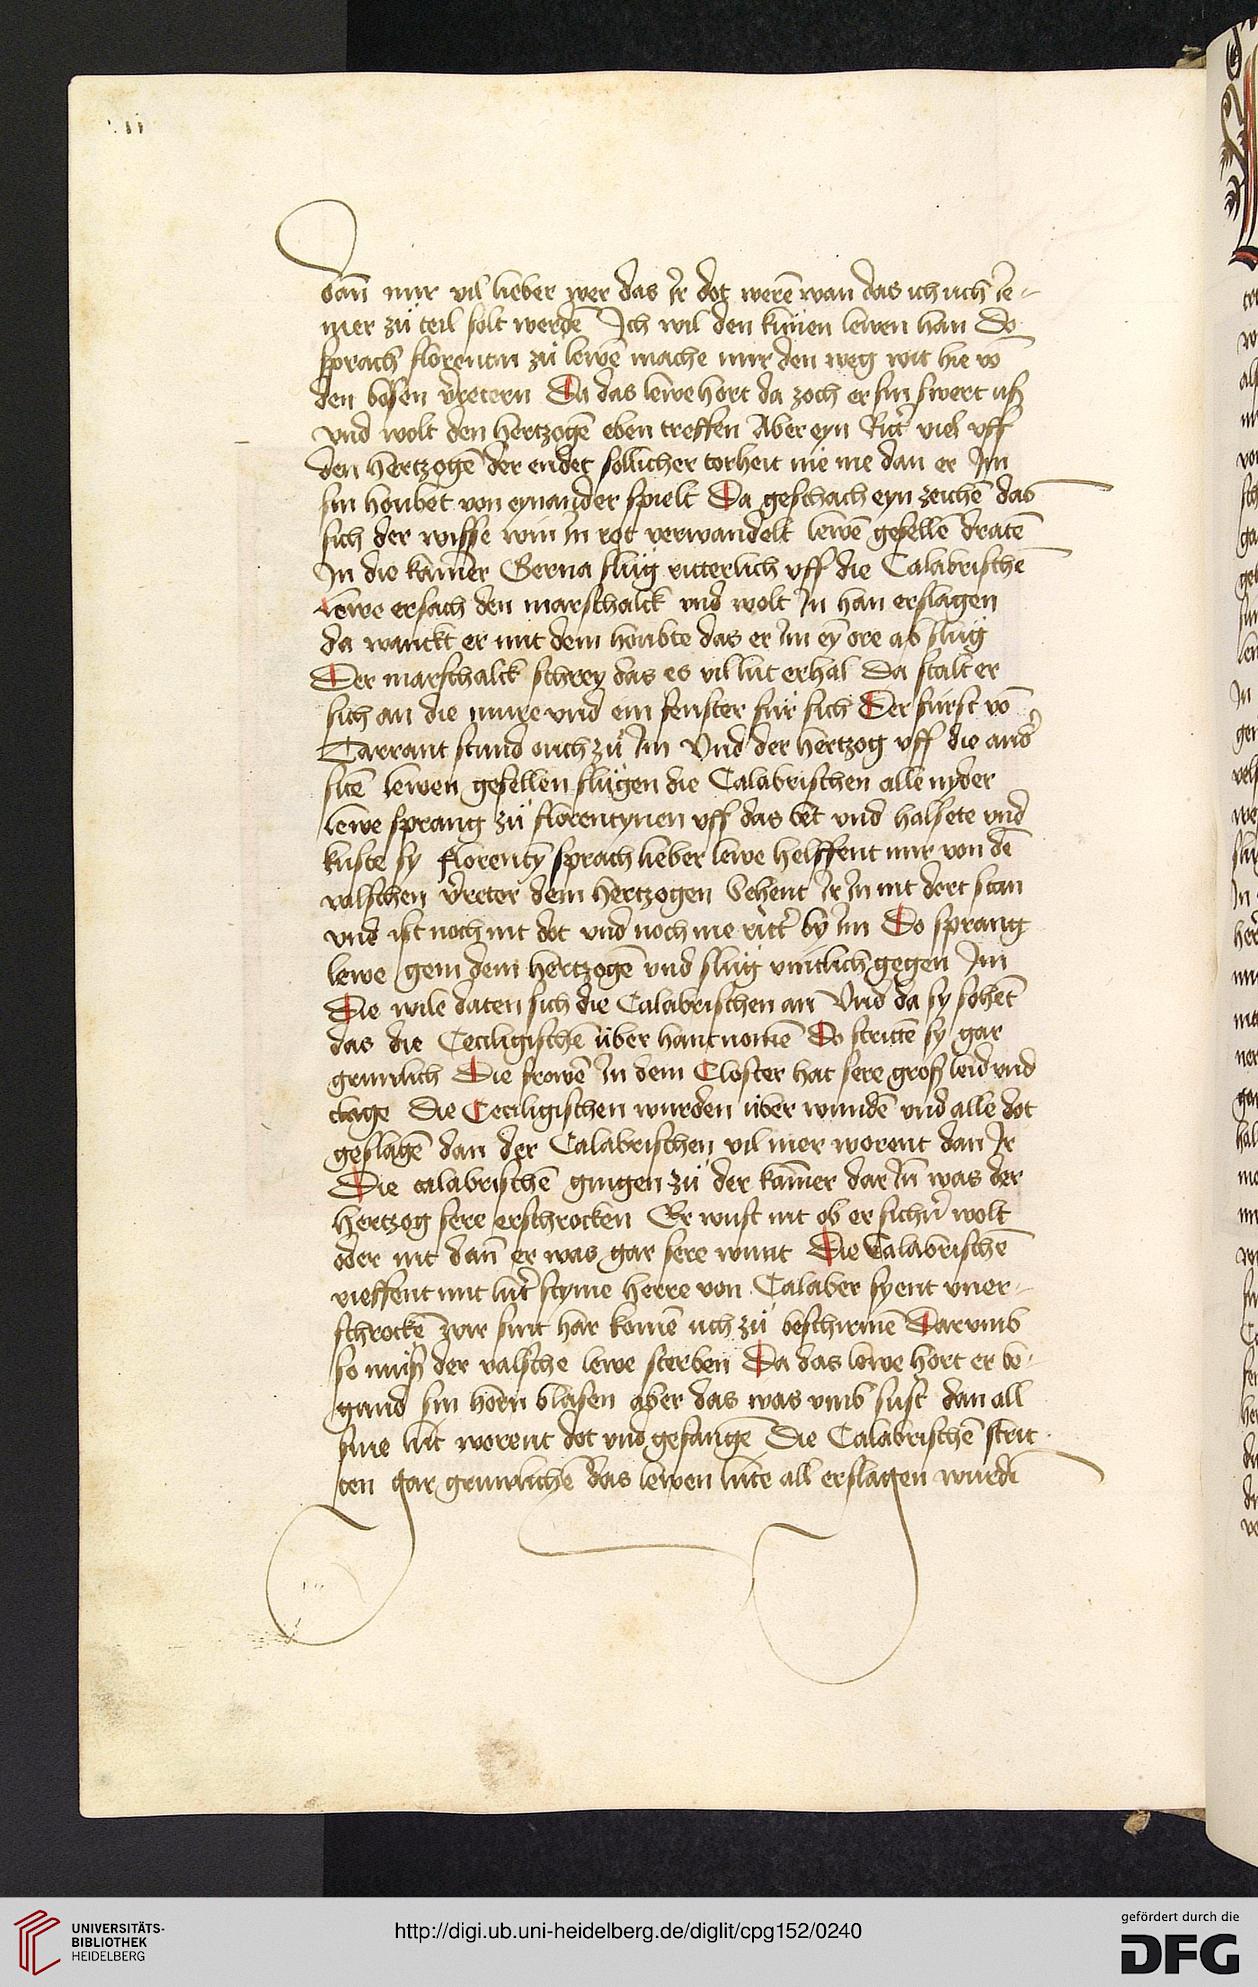 dañ mir vil lieber wer das Ir dot werē wan das ich uch ie-
mer zü teil solt werdē Ich wil den küͤnen lewen han Do
sprach florentin zü lewē mache mir den weg wit hie vō
den bösen v̓retern Da das lewe hort da zoch er sin swert uß
vnd wolt den hertzogē eben treffen Aber eyn Ritt̓ viel vff
den hertzogē der endet sollicher torheit nie me dan er Im
sin houbet von eynander spielt Da geschach eyn zeichē das
sich der wisse win in rot verwandelt lewē gesellē dratē
In die kam̄er Gerna slüg ritterlich vff die Calabrischē
Lewe ersach den marschalck vnd wolt In han erslagen
da wanckt er mit dem houbte das er Im eÿ ore ab slüg
Der marschalck schrey das es vil lut erhal Da stalt er
sich an die mure vnd ein fenster für sich Der fürst vō
Tarrant stund ouch zü Im Vnd der hertzog vff die and̓
sitē lewen gesellen slügen die Calabrischen alle nyder
Lewe sprang zü florentynen vff das bet vnd halsete vnd
kuste sy florentÿ sprach lieber lewe helffent mir von dē
valschen v̓reter dem hertzogen Sehent Ir In nit dort stan
vnd ist noch nit dot vnd noch me ritt̓ by im Do sprang
lewe gein dem hertzogē vnd slüg vintlich gegen Im
Die wile daten sich die Calabrischen an Vnd da sy sohēt
das die Ceciligischē über hant nomē Do strittē sy gar
grimlich Die frowē in dem Closter hat sere groß leid vnd
clage Die Ceciligischen wurden über wundē vnd alle dot
geslagē dan der Calabrischen vil mer worent dan Ir
Die calabrischē gingen zü der kam̄er dar In̄ was der
hertzog sere erschrocken Er wust nit ob er sich v̓ wolt
oder nit dan̄ er was gar sere wunt Die Calabrischē
rieffent mit lut̓ styme herre von Calaber syent vner-
schrockē wir sint har komē uch zü beschirmē Darumb
so müß der valsche lewe sterben Da das lewe hort er be-
gund sin horn blasen aber das was vmb sust dan all
sine lüt worent dot vnd gefangē Die Calabrischē strit
ten gar grimlichē das lewen lüte all erslagen wurdē
UNIVERSITÄTS-
BIBLIOTHEK
HEIDELBERG
http://digi.ub.uni-heidelberg.de/diglit/cpg152/0240
gefördert durch die
DFG